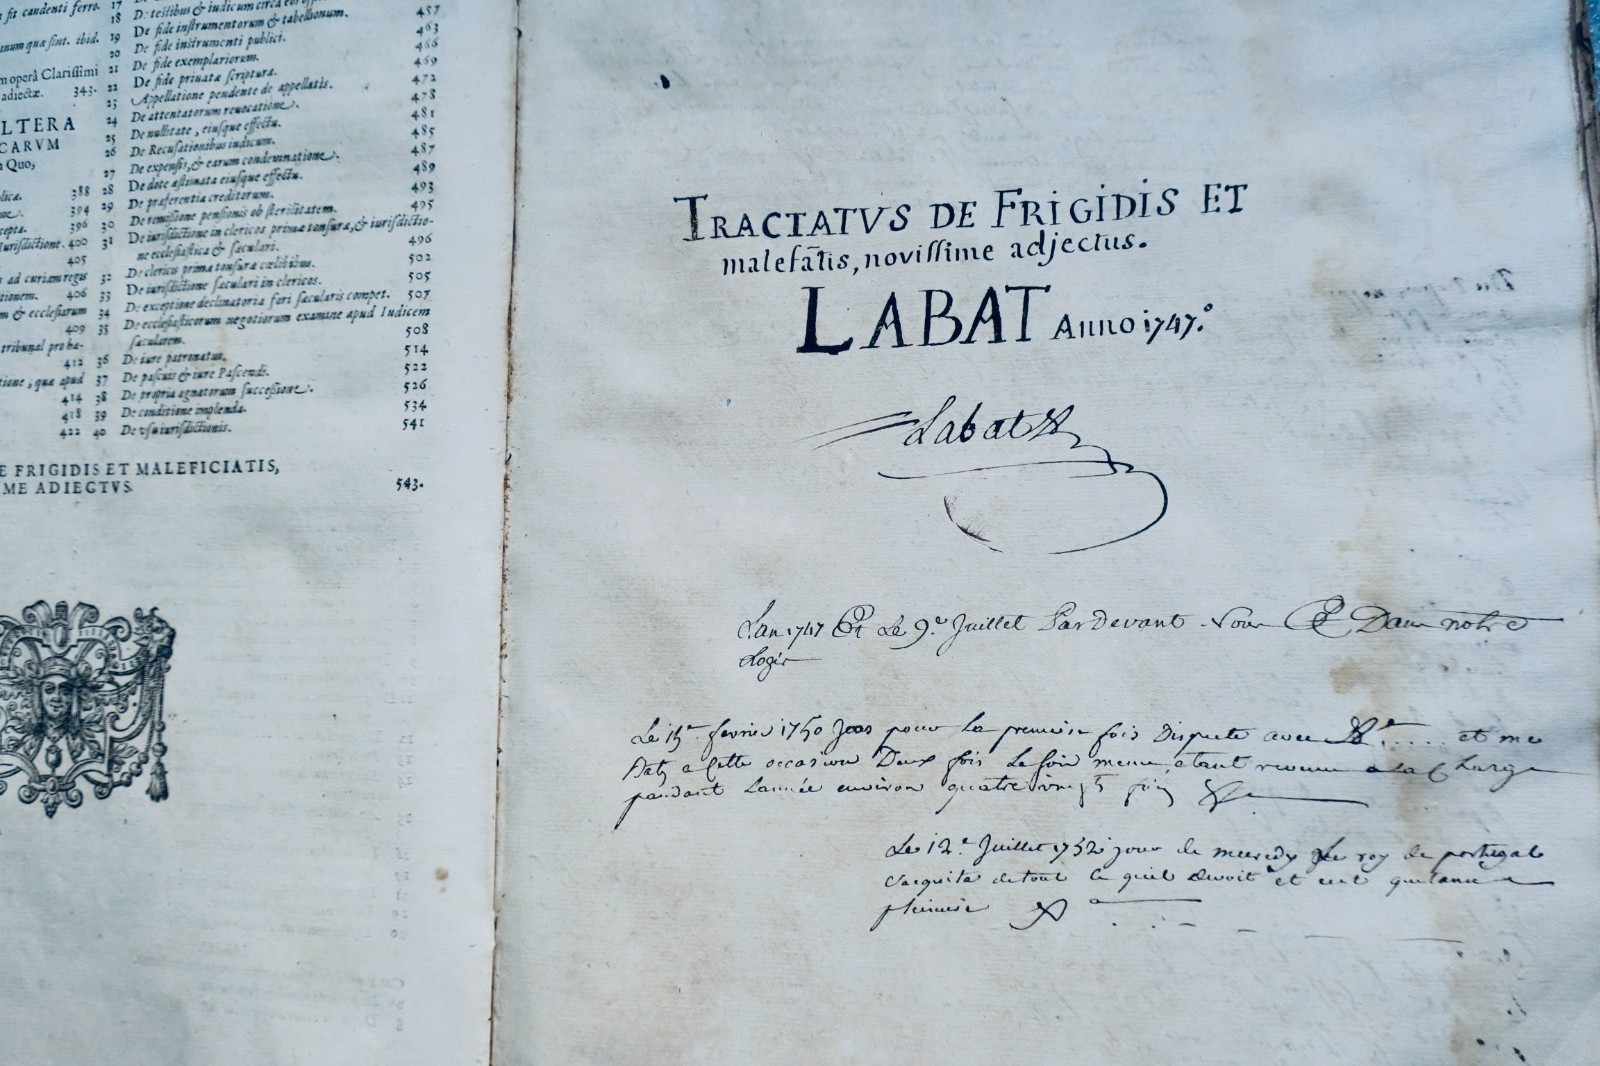 fit candenti ferro. 17
18 De testibus & iudicum circa eos
De fide instrumentorum & tabellionum. 457
num quæ sint. ibid. 19 De fide instrumenti publici. 463
20 De fide exemplariorum. 466
m operâ Clarissimi 21 De fide priuatæ scripturæ. 469
adiectæ. 343. 22 Appellatione pendente de appellatis. 472
23 De attentatorum reuocatione. 478
LTERA 24 De nullitate, eiusque effectu. 481
CARVM 25 De Recusationibus iudicum. 485
Quo, 26 De expensis, & earum condemnatione. 487
27 De dote æstimata eiusque effectu. 489
388 28 De præferentia creditorum. 493
394 29 De remissione pensionis ob sterilitatem. 495
cepta. 396 30 De iurisdictione in clericos primæ tonsuræ, & iurisdictio-
iurisdictione. 400 31 ne ecclesiastica & sæculari. 496
405 De clericis primæ tonsuræ cælibibus. 502
s ad curiam regus 32 De iurisdictione sæculari in clericos. 505
tionem. 406 33 De exceptione declinatoria fori sæcularis compet. 507
m & ecclesiarum 34 De ecclesiasticorum negotiorum examine apud Iudicem
409 35 sæcularem. 508
tribunal pro ha- De iure patronatus. 514
412 36 De pascuis & iure Pascendi. 522
tione, quæ apud 37 De propria agnatorum successione. 526
414 38 De conditione implenda. 534
418 39 De vsu iurisdictionis. 541
422 40
E FRIGIDIS ET MALEFICIATIS,
ME ADIECTVS. 543.
TRACTATVS DE FRIGIDIS ET
malefātis, novissime adjectus.
LABAT Anno 1747.°
Labat
Lan 1747 Et Le 9.e Juillet Pardevant Nous Et Dans notre
Logis
Le 15e fevrier 1750 Jeas pour la premiere fois Dispute avec ..... et me
Baty a Cette occasion Deux fois Le soir meme, etant revenu a la Charge
pandant Lannée environ quatre vingt fois
Le 12.e Juillet 1752 jour de mecredy Le roy de portugal
saquita de tout Ce quil devoit et eut quitance
pleniere